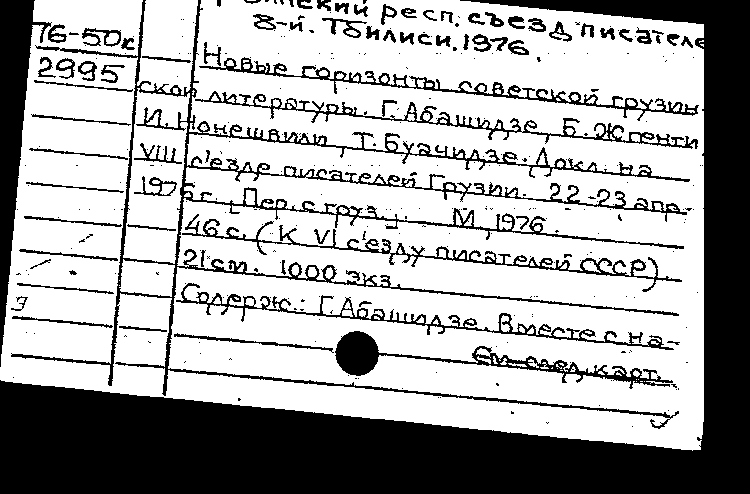 респ. съезд писателе
76-50к 8-й. Тбилиси. 1976.
2995 Новые горизонты советской грузин-
ской литературы. Г. Абашидзе, Б. Жгенти
И. Нонешвили, Т. Буачидзе. Докл. на
VIII с'езде писателей Грузии. 22-23 апр.
1976 г. [Пер. с груз.]. М, 1976.
46 с. (К VI с'езду писателей СССР).
21 см. 1000 экз.
Содерж.: Г. Абашидзе. Вместе с на-
См след. карт.